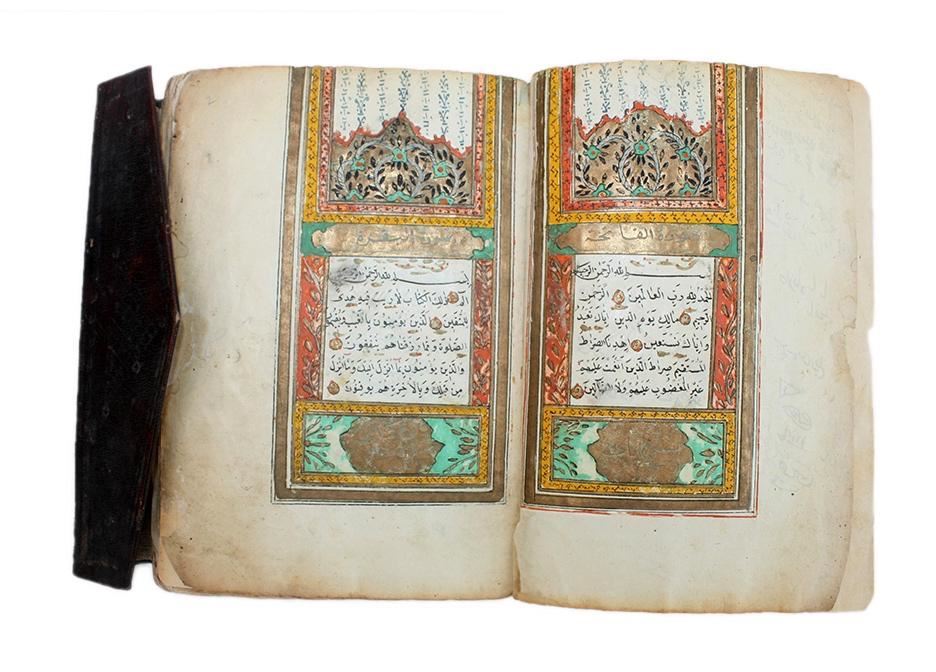 سورة الفاتحة
بسم الله الرحمن الرحيم
الحمد لله رب العالمين الرحمن
الرحيم مالك يوم الدين اياك نعبد
واياك نستعين اهدنا الصراط
المستقيم صراط الذين انعمت عليهم
غير المغضوب عليهم ولا الضالين
سورة البقرة
بسم الله الرحمن الرحيم
الم ذلك الكتاب لا ريب فيه هدى
للمتقين الذين يؤمنون بالغيب ويقيمون
الصلوة ومما رزقناهم ينفقون
والذين يؤمنون بما انزل اليك وما انزل
من قبلك وبالاخرة هم يوقنون